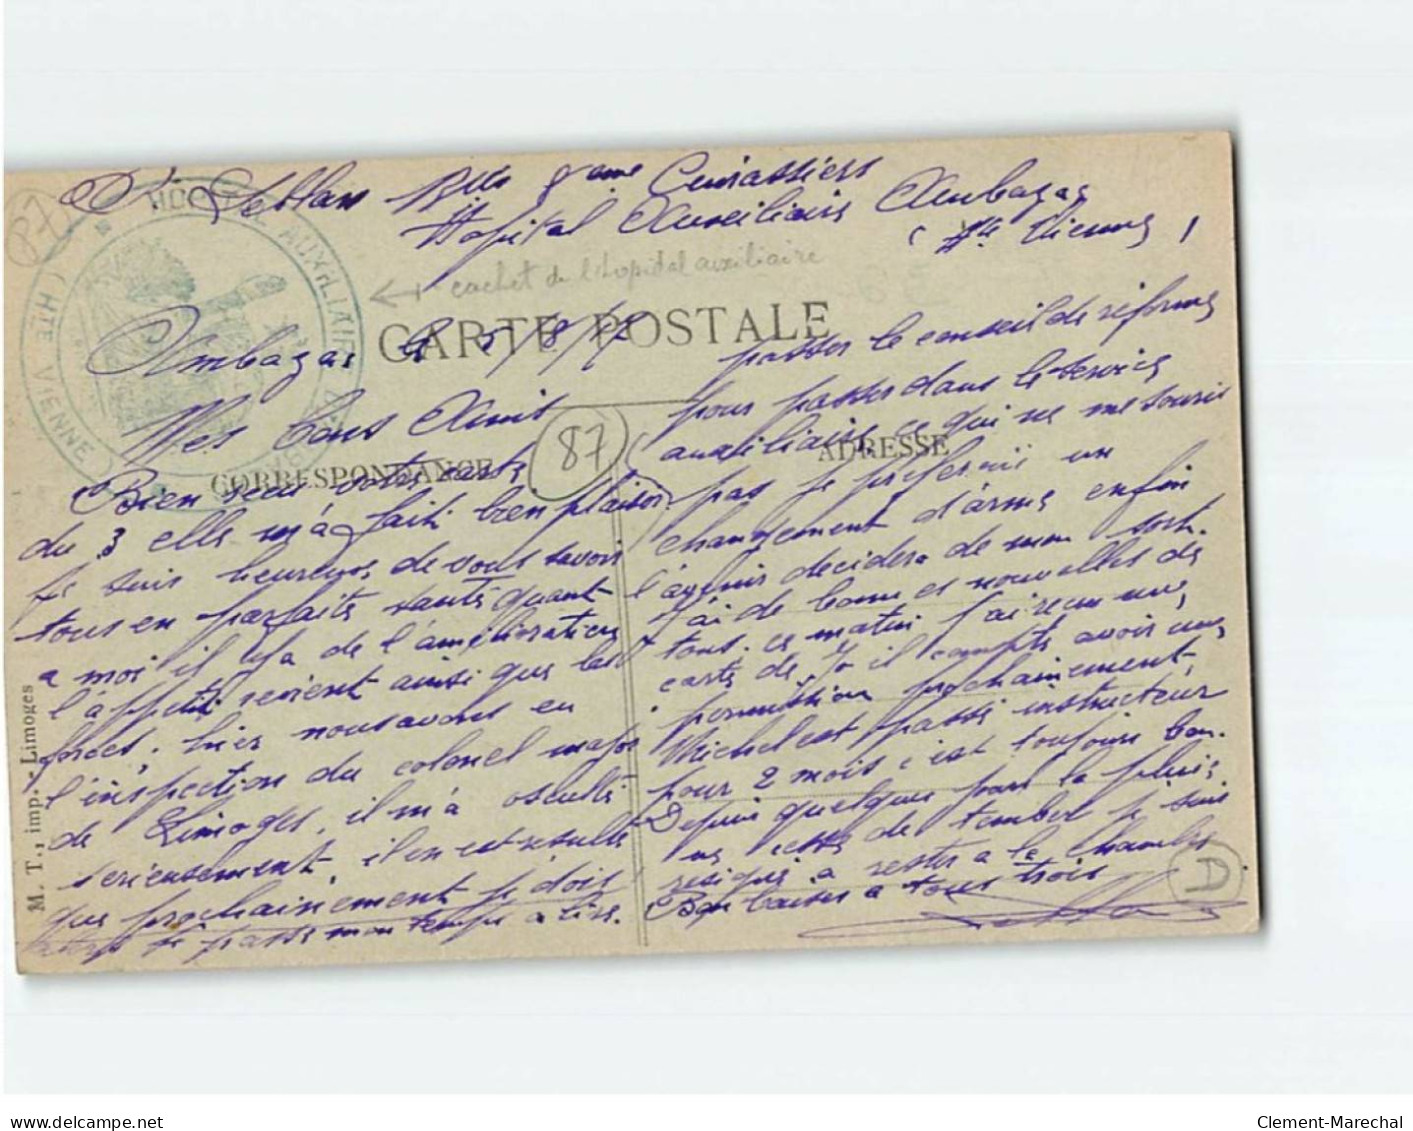 Hopital Auxiliaire Ambazac
(Hte Vienne)
8eme Cuirassiers
cachet de l'hopital auxiliaire
HOPITAL AUXILIAIRE
(HTE VIENNE)
87
CARTE POSTALE
CORRESPONDANCE
ADRESSE
87
Ambazac le 5/8/17
Mes bons Amis
Bien recu votre carte
du 3 elle m'a fait bien plaisir.
Je suis heureux de vous savoir
tous en parfaite santé quant
a moi il y a de l'amélioration
l'appetit revient ainsi que les
forces, hier nous avons eu
l'inspection du colonel major
de Limoges, il m'a osculté
serieusement, il en est resulté
que prochainement je dois
je passe mon temps a lire.
passer le conseil de réforme
pour passer dans le service
auxiliaire ce qui ne me souris
pas je preferais un
changement d'arme enfin
l'avenir decidera de mon sort.
J'ai de bonnes nouvelles de
tous. ce matin j'ai recu une
carte de il compte avoir une
permission prochainement,
Michel est passé instructeur
pour 2 mois c'est toujours bon.
Depuis quelques jours la pluie
ne cesse de tomber je suis
resigné a rester a la chambre
Bon baiser a tous trois
M. T., imp. - Limoges
D
www.delcampe.net
Clement-Marechal